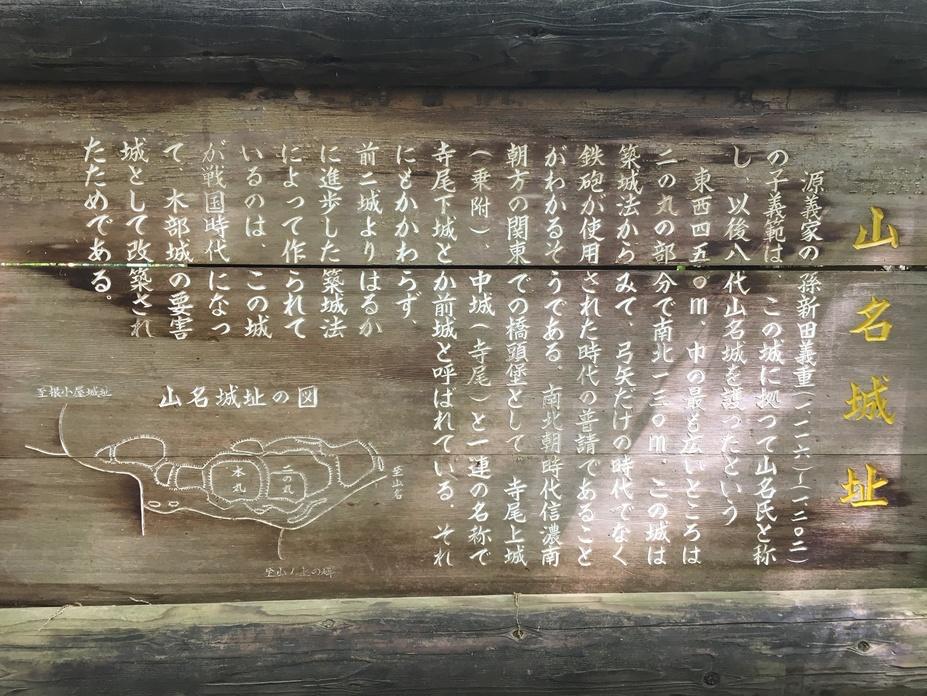 山名城址
源義家の孫新田義重(一一二六)~(一二〇二)
の子義範は この城に拠って山名氏と称
し、以後八代山名城を護ったという
東西四五〇m、巾の最も広いところは
二の丸の部分で南北一三〇m、この城は
築城法からみて、弓矢だけの時代でなく
鉄砲が使用された時代の普請であること
がわかるそうである。南北朝時代信濃南
朝方の関東での橋頭堡として 寺尾上城
(乗附)、中城(寺尾)と一連の名称で
寺尾下城とか前城と呼ばれている。それ
にもかかわらず、
前二城よりはるか
に進歩した築城法
によって作られて
いるのは、この城
が戦国時代になっ
て、木部城の要害
城として改築され
たためである。
山名城址の図
至根小屋城址
本丸
二の丸
至山名
至山ノ上の碑